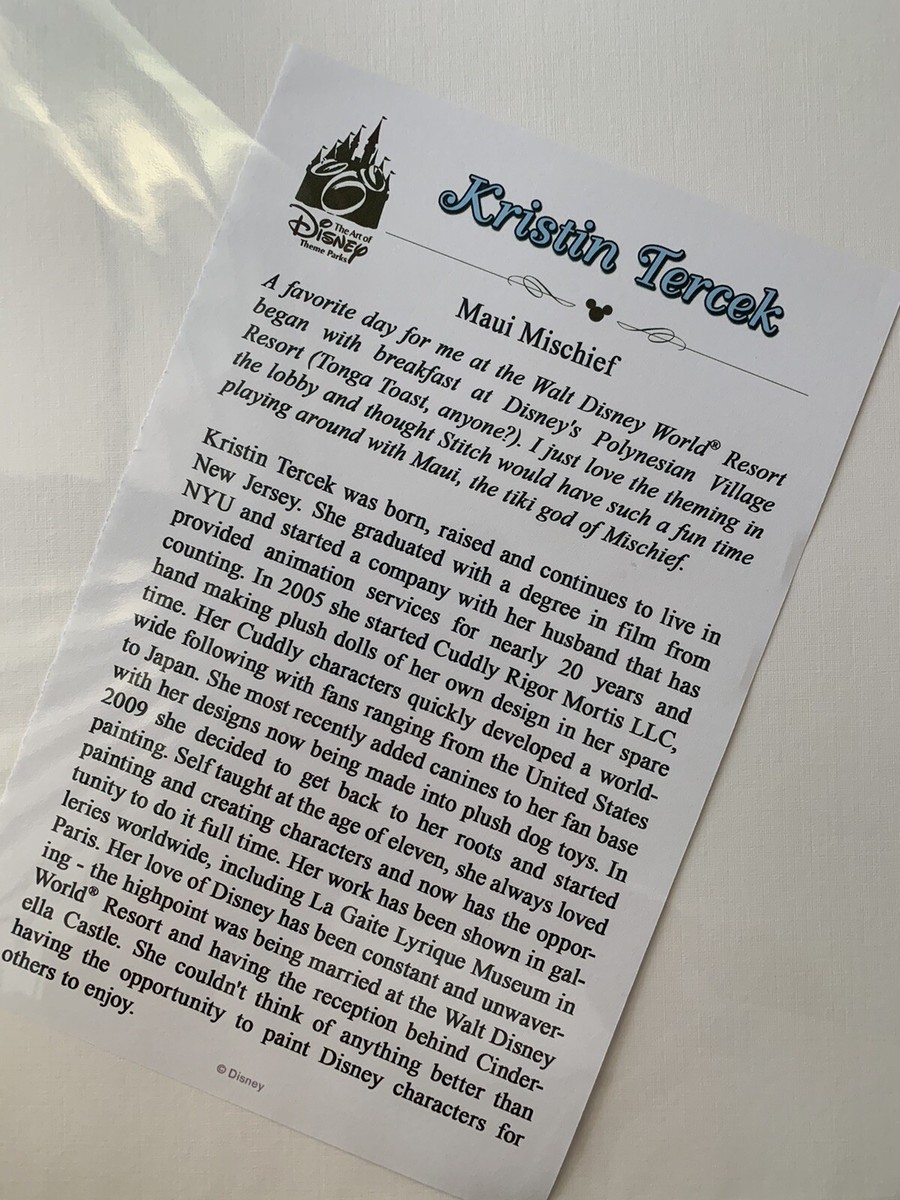 The Art of
Disney
Theme Parks
Kristin Tercek
Maui Mischief
A favorite day for me at the Walt Disney World® Resort
began with breakfast at Disney's Polynesian Village
Resort (Tonga Toast, anyone?). I just love the theming in
the lobby and thought Stitch would have such a fun time
playing around with Maui, the tiki god of Mischief.
Kristin Tercek was born, raised and continues to live in
New Jersey. She graduated with a degree in film from
NYU and started a company with her husband that has
provided animation services for nearly 20 years and
counting. In 2005 she started Cuddly Rigor Mortis LLC,
hand making plush dolls of her own design in her spare
time. Her Cuddly characters quickly developed a world-
wide following with fans ranging from the United States
to Japan. She most recently added canines to her fan base
with her designs now being made into plush dog toys. In
2009 she decided to get back to her roots and started
painting. Self taught at the age of eleven, she always loved
painting and creating characters and now has the oppor-
tunity to do it full time. Her work has been shown in gal-
leries worldwide, including La Gaite Lyrique Museum in
Paris. Her love of Disney has been constant and unwaver-
ing - the highpoint was being married at the Walt Disney
World® Resort and having the reception behind Cinder-
ella Castle. She couldn't think of anything better than
having the opportunity to paint Disney characters for
others to enjoy.
© Disney